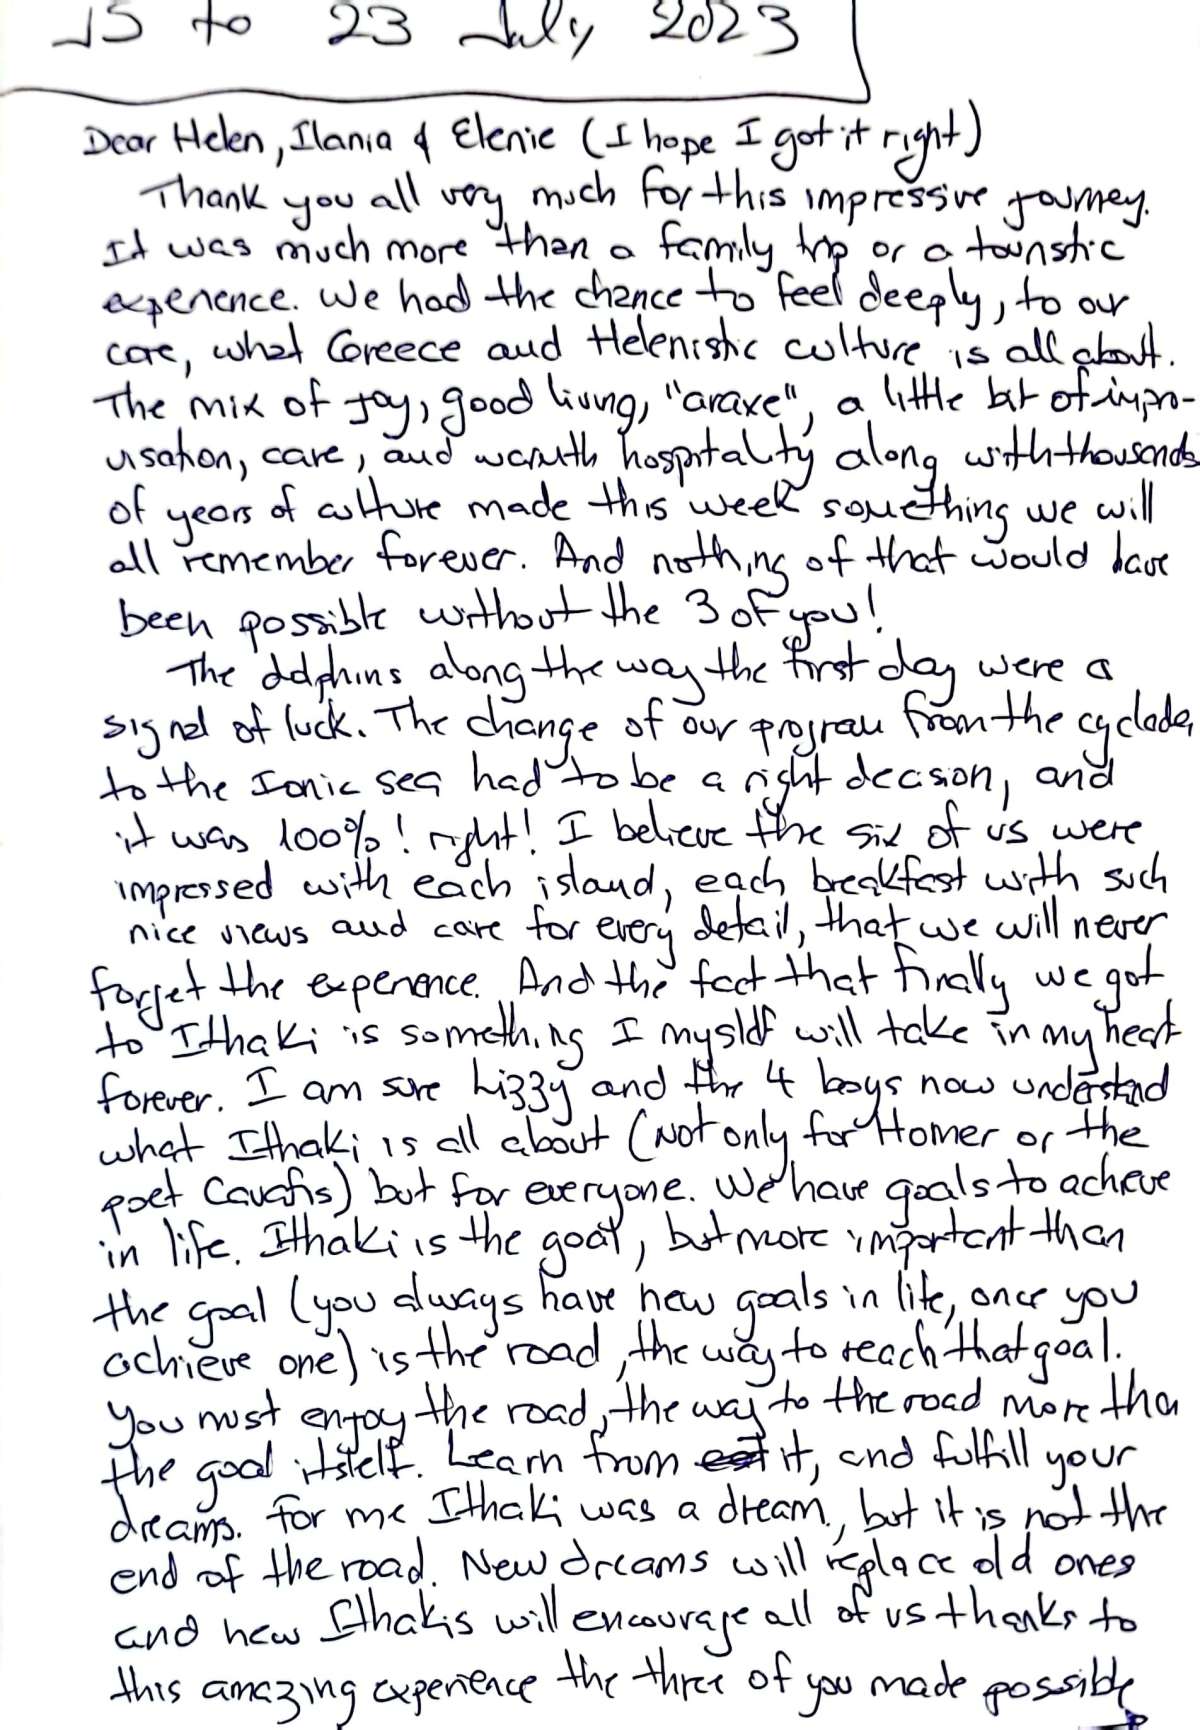 15 to 23 July 2023
Dear Helen, Ilania & Elenie (I hope I got it right)
Thank you all very much for this impressive journey.
It was much more than a family trip or a touristic
experience. We had the chance to feel deeply, to our
core, what Greece and Helenistic culture is all about.
The mix of joy, good living, "araxe", a little bit of impro-
visation, care, and warmth hospitality along with thousands
of years of culture made this week something we will
all remember forever. And nothing of that would have
been possible without the 3 of you!
The dolphins along the way the first day were a
signal of luck. The change of our program from the cyclades
to the Ionic sea had to be a right decision, and
it was 100%! right! I believe the six of us were
impressed with each island, each breakfast with such
nice views and care for every detail, that we will never
forget the experience. And the fact that finally we got
to Ithaki is something I myself will take in my heart
forever. I am sure Lizzy and the 4 boys now understand
what Ithaki is all about (not only for Homer or the
poet Cavafis) but for everyone. We have goals to achieve
in life. Ithaki is the goal, but more important than
the goal (you always have new goals in life, once you
achieve one) is the road, the way to reach that goal.
You must enjoy the road, the way to the road more than
the goal itself. Learn from it, and fulfill your
dreams. For me Ithaki was a dream, but it is not the
end of the road. New dreams will replace old ones
and new Ithakis will encourage all of us thanks to
this amazing experience the three of you made possible